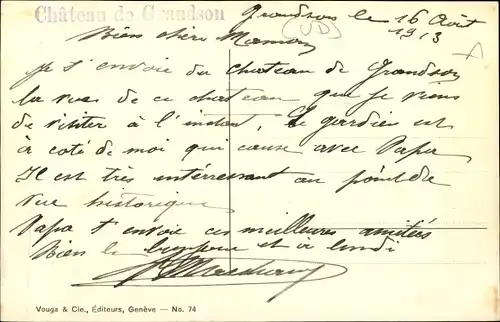 Château de Grandson
Grandson le 16 Août
1913
(VD)
Bien chère Maman
Je t'envoie du chateau de Grandson
la vue de ce chateau que je viens
de visiter à l'instant, le gardien est
à coté de moi qui cause avec Papa
Il est très intérressant au point de
vue historique
Papa t'envoie ces meilleures amitiés
Bien le bonjour et à lundi
Vouga & Cie., Éditeurs, Genève — No. 74